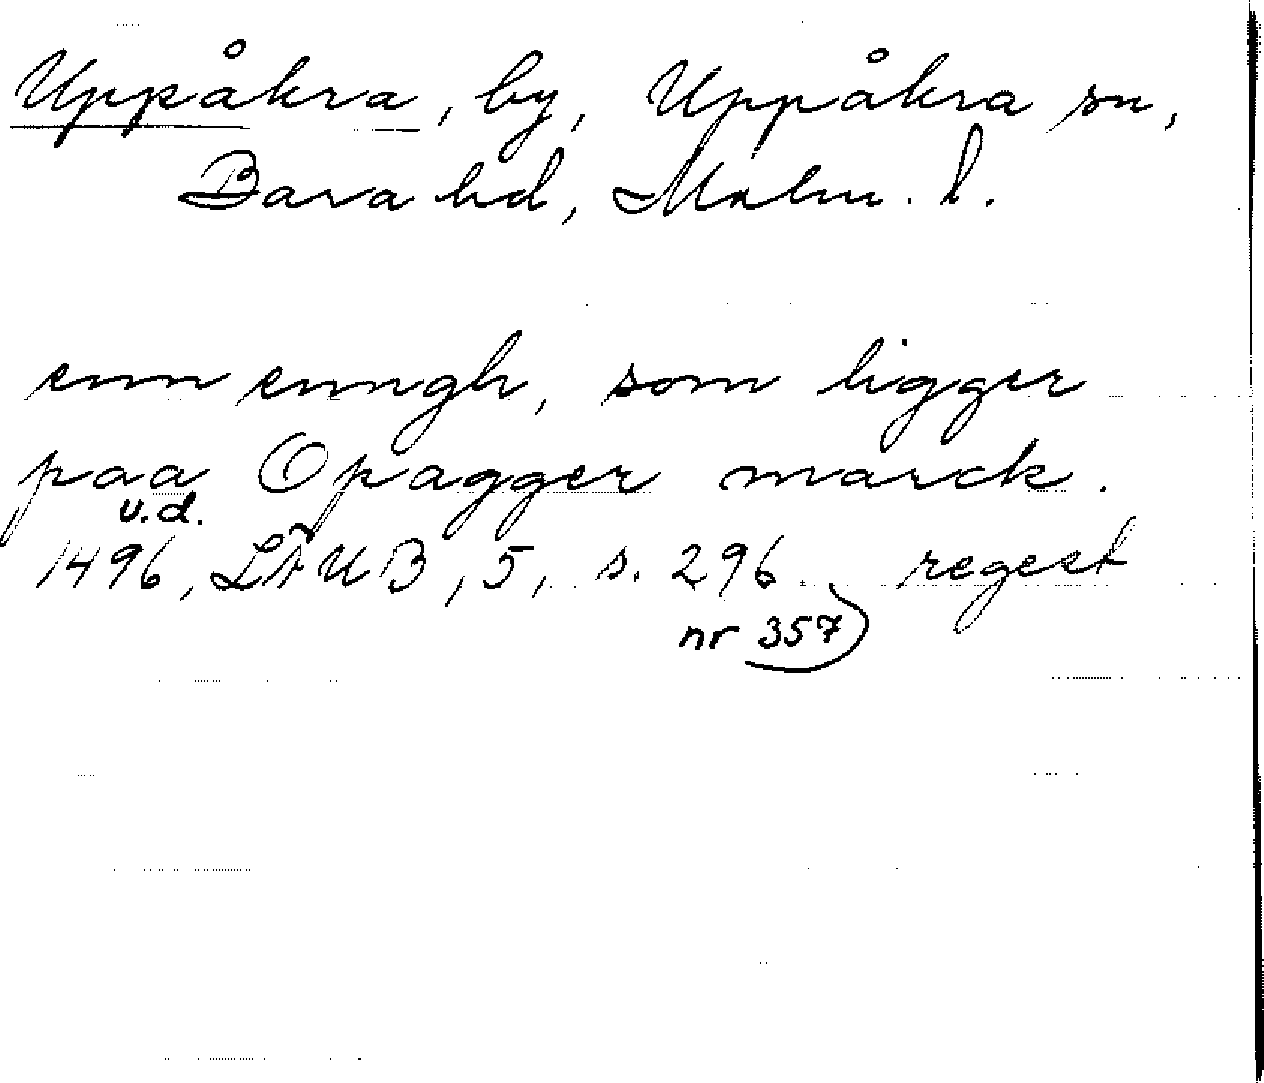 Uppåkra, by, Uppåkra sn,
Bara hd, Malm. l.
enn enngh, som ligger
paa Opagger marck.
u.d.
1496, LÄUB, 5, s. 296 regest
nr 357